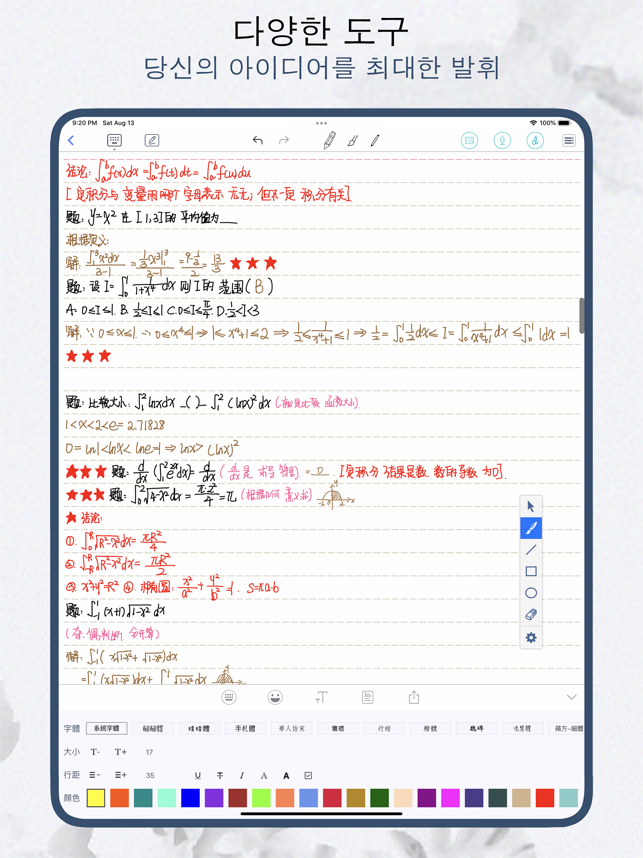 다양한 도구
당신의 아이디어를 최대한 발휘
9:20 PM Sat Aug 13 100%
结论: ∫ₐᵇf(x)dx = ∫ₐᵇf(t)dt = ∫ₐᵇf(u)du
[定积分与变量用 字母表示 无关; 但不定积分有关]
题: y=x² 在 [1,3]的 平均值为
根据定义:
解: ∫₁³x²dx/3-1 = ⅓x³|₁³/3-1 = 9-⅓/2 = 13/3 ★★★
题: 设 I=∫₀¹ 1/√1+x⁴ dx 则 I 的 范围(B)
A. 0≤I≤1. B. ½≤I≤1 C. 0≤I≤π/4. D. ½<I<3
解: ∵ 0≤x≤1. ∴ 0≤x⁴≤1 ⇒ 1≤x⁴+1≤2 ⇒ ½≤1/x⁴+1≤1 ⇒ ½=∫₀¹½dx≤ I=∫₀¹ 1/x⁴+1 dx ≤∫₀¹ 1dx =1
★★★
题: 比较大小: ∫₁²lnxdx _( )_ ∫₁²(lnx)²dx (就是比较 函数大小)
1<x<2<e= 2.71828
0=ln1<lnx< lne=1 ⇒ lnx> (lnx)²
★★★ 题: d/dx = d/dx (d/dx是 求导 ) = 0. [定积分 结果是数. 数的导数 为0].
★★★ 题: ∫₀²√4-x²dx = π·2²/4 =π (根据几何 意义求)
★ 结论:
①. ∫₀ᴿ√R²-x²dx= πR²/4
②. ∫₋ᴿᴿ√R²-x²dx= πR²/2
③. x²+y²=R² ④. 椭圆: x²/a² + y²/b² =1. S=πa·b
题: ∫₋₁¹ (x+1)√1-x² dx
(奇. 偶 分开算)
解: ∫₋₁¹( x√1-x²+ √1-x²)dx
=∫₋₁¹(x√1-x²)dx+ ∫₋₁¹√1-x²dx
字體 系統字體 翩翩體 娃娃體 手札體 華人仿宋 雅痞 行楷 楷體 魏碑 凌慧體 蘋方-細體
大小 T- T+ 17
行距 35 U T I A A
顏色